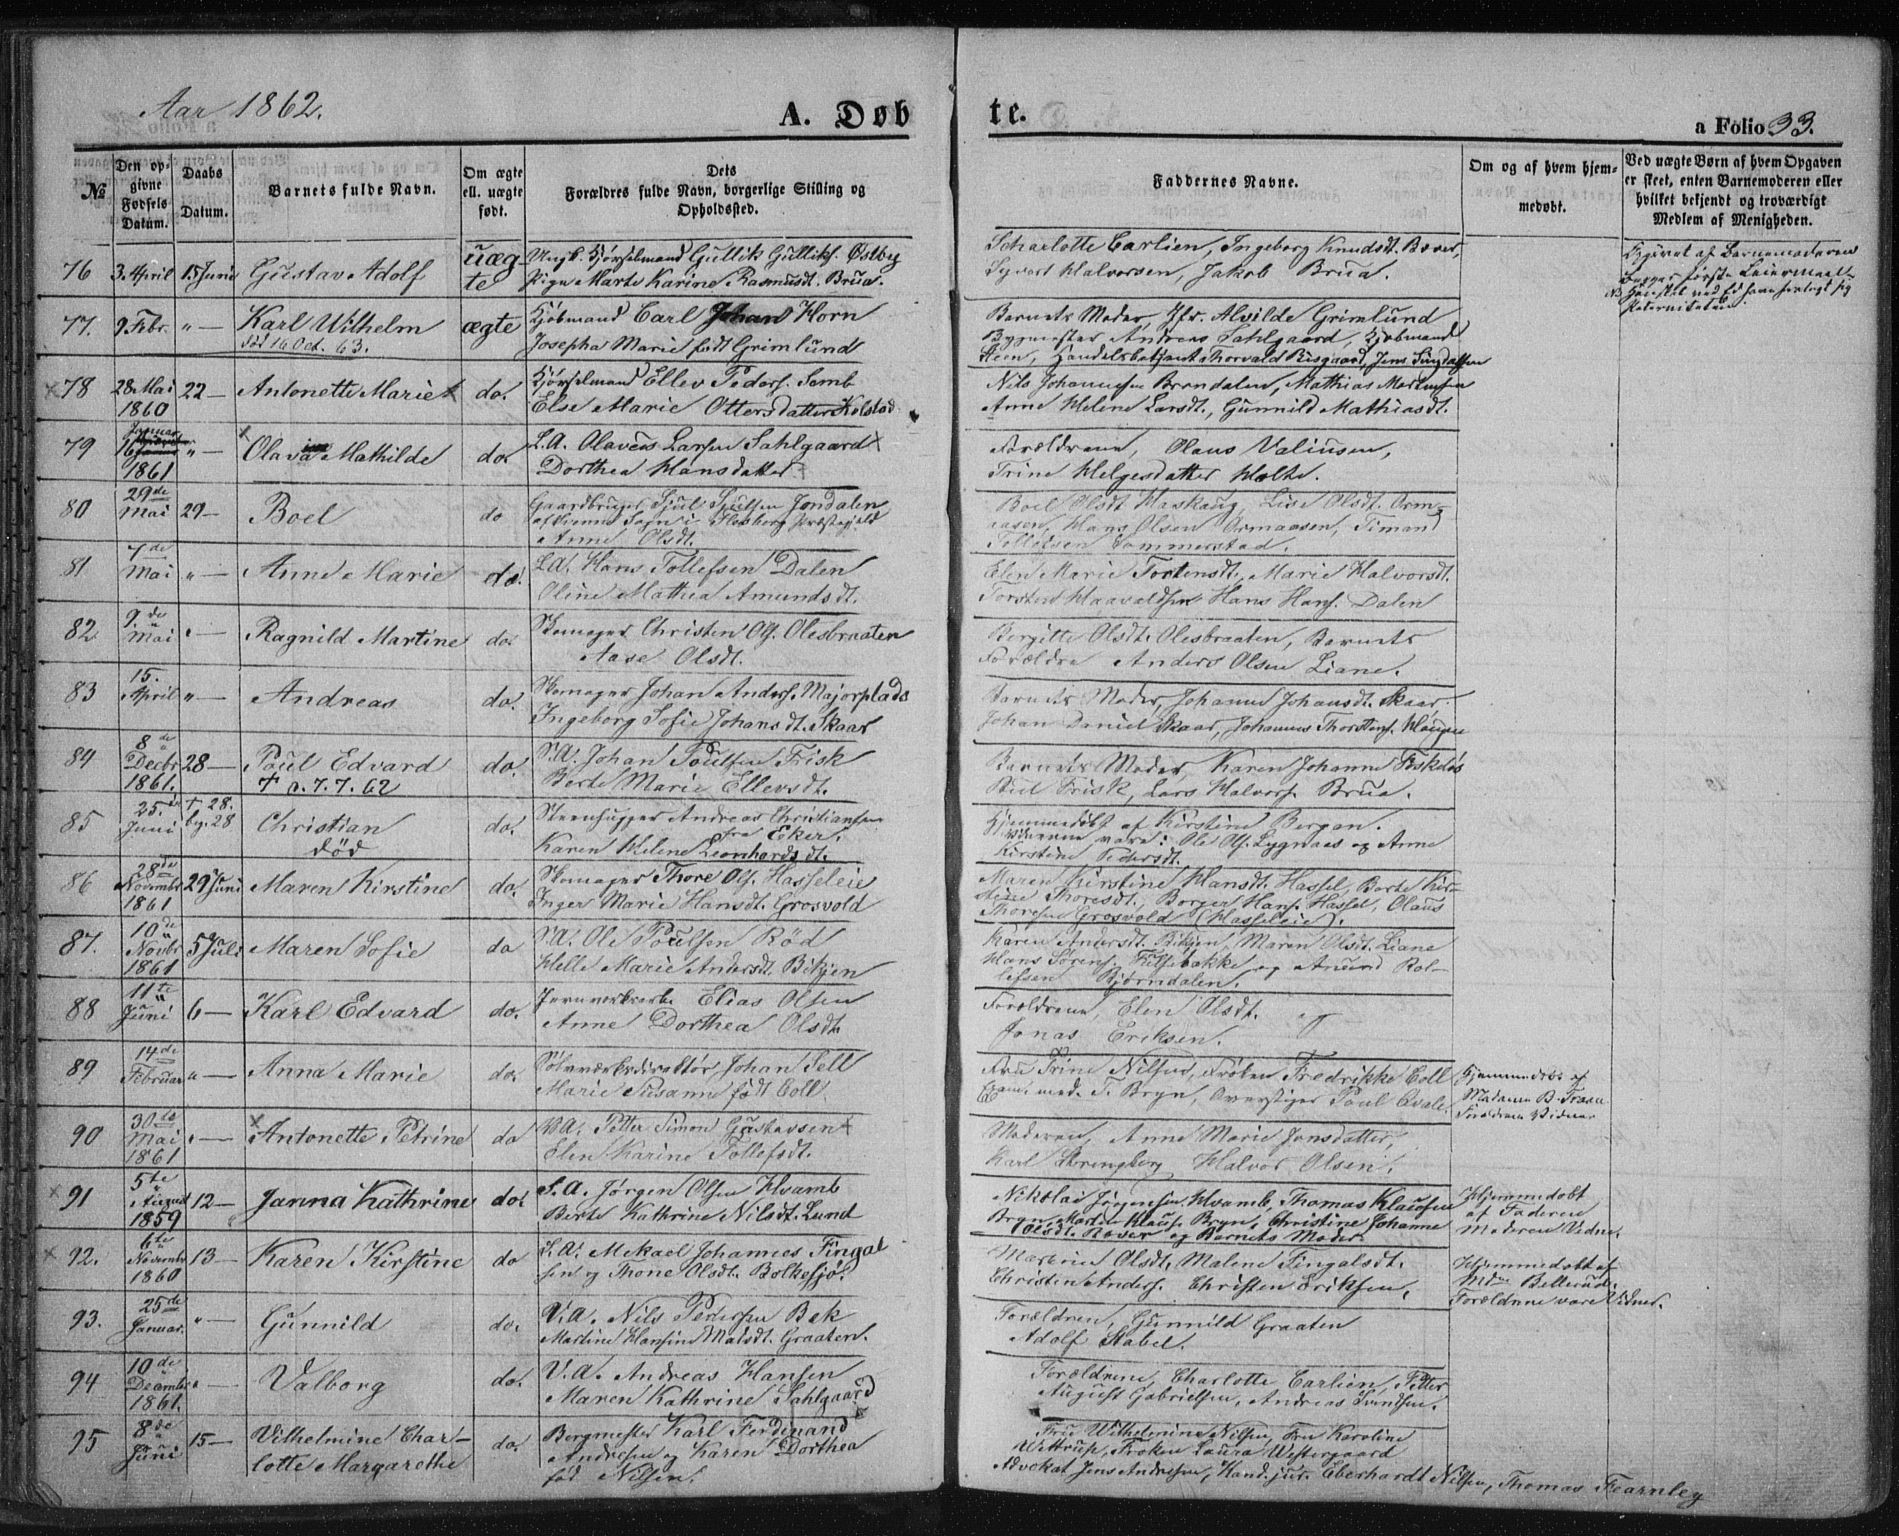 Aar 1862.
A. Døb
te.
a Folio 33.
No
Den opgivne Fødsels Datum.
Daabs Datum.
Barnets fulde Navn.
Om ægte ell. uægte født.
Dets Forældres fulde Navn, borgerlige Stilling og Opholdssted.
Faddernes Navne.
Om og af hvem hjemmedøbt.
Ved uægte Børn af hvem Opgaven er skeet, enten Barnemoderen eller hvilket bekjendt og troværdigt Medlem af Menigheden.
76 3. April 15 Juni Gustav Adolf uægte
Ungk. Kjørselmand Gullik Gulliks. Østby
Pige Marte Karine Rasmusdt. Brua.
Scharlotte Carlien, Ingeborg Knudsdt. Bæver,
Syvert Halvorsen, Jakob Brua.
Opgivet af Barnemoderen
Begges første Leiermaal
77. 9 Febr. " — Karl Wilhelm ægte
død 16 Oct. 63.
Kjøbmand Carl Johan Horn
Josepha Marie født Grimlund
Barnets Moder, Jfr. Alvilde Grimlund
Bygmester Andreas Sahlgaard, Kjøbmand
Steen, Handelsbetjent Thorvald Riisgaard, Jens
× 78 28 Mai 1860 22 — Antonette Marie × do.
Kjørselmand Ellev Peders. Semb
Else Marie Ottersdatter Kolstad
Nils Johannesen Brondalen, Mathias Mortensen
Anne Helene Larsdt., Gunnild Mathiasdt.
79 16 Januar 1861 " — × Olava Mathilde do.
S.A. Olaves Larsen Sahlgaard ×
Dorthea Hansdatter
Forældrene, Olaus Valiusen,
Trine Helgesdatter Holte.
80 29de Mai 29 — Boel do
Gaardbruger Sjul Sjulsen Jondalen
af Sogn i Flesberg Præstegjeld
Anne Olsdt.
Boel Olsdt. Haskaug, Lise Olsdt. Orm-
aasen, Hans Olsen Ormaasen, Timand
Tollefsen Sommerstad.
81 7de Mai " — Anne Marie do.
S.A. Hans Tollefsen Dalen
Oline Mathea Amundsdt.
Elen Marie Torstensdt., Marie Halvorsdt.
Torsten Haavaldsen Hans Hans. Dalen
82 9.de Mai " — Ragnild Martine do.
Skomager Christen Ols. Olesbraaten
Aase Olsdt.
Bergitte Olsdt. Olesbraaten, Barnets
Forældre Anders Olsen Liane.
83 15. April " — Andreas do.
Skomager Johan Anders. Majorplads
Ingeborg Sofie Johansdt. Skaar
Barnets Moder, Johanne Johansdt. Skaar,
Johan Daniel Skaar, Johannes Thorstens. Haugen
84 8de Decbr 1861. 28 — Poul Edvard do.
† d. 7.7.62
S.A. Johan Poulsen Frisk
Berte Marie Ellevsdt.
Barnets Moder, Karen Johanne
Poul Frisk, Lars Halvors. Brua.
85 25. Juni † 28. beg. 28 Christian do.
død
Steenhugger Andreas Christiansen
fra Eker.
Karen Helene Leonhardsdt.
Hjemmedøbt af Kirstine Bergan.
Vidnerne vare: Ole Ols. Lygnaas og Anne
Kirstine Pedersdt.
86 28de Novembr 1861 29 Juni Maren Kirstine do.
Skomager Thore Ols. Hasseleie
Inger Marie Hansdt. Grosvold
Maren Kirstine Hansdt. Hassel, Berte Kir-
stine Thoresdt., Borger Hans. Hassel, Olaus
Thoresen Grosvold (Hasseleie).
87. 10de Novbr 1861 5 Juli Maren Sofie do
S.A. Ole Poulsen Rød
Helle Marie Andersdt. Bikjen
Karen Andersdt. Bikjen, Maren Olsdt. Liane
Hans Sørens. Fulsebakke og Amund Rol-
lefsen Bjørndalen.
88 11te Juni 6 — Karl Edvard do.
Jernverksarb. Elias Olsen
Anne Dorthea Olsdt.
Forældrene, Elen Olsdt. og
Jonas Eriksen.
89 14de Februar " — Anna Marie do.
Sølvværksdirektør, Johan Sell
Marie Susanne født Coll
Fru Trine Nilsen, Frøken Fredrikke Coll
Exam. med. T. Bryn, Overstiger Poul
Hjemmedøbt af
Madame B.
Forældrene Vidner
90 30te Mai 1861 " — × Antonette Petrine do
V.A. Petter Simon Gustavsen ×
Elen Karine Tollefsdt.
Moderen, Anne Marie Jonsdatter,
Karl Strengberg Halvor Olsen.
× 91 5te August 1859 12 — Janna Kathrine do.
S.A. Jørgen Olsen Hvamb
Berte Kathrine Nilsdt. Lund
Nikolai Jørgensen Hvamb, Thomas Klausen
Bryn, Morten Klaus. Bryn, Christine Johanne
Olsdt. Bæver og Barnets Moder
Hjemmedøbt
af Faderen
Moderen Vidne.
× 92. 6te Novembr 1860 13 — Karen Kirstine do
S.A. Mikael Johannes Fingal
sen og Thone Olsdt. Bolkesjø.
Marthe Olsdt. Malene Fingalsdt.
Christin Anders. Christen Eriksen.
Hjemmedøbt af
Mdme Bellerud.
Forældrene vare Vidner.
93. 25de Januar. " — Gunnild do.
V.A. Nils Pedersen Bek
Martine Hansine Matsdt. Graaten.
Forældren, Gunnild Graaten
Adolf Stabel.
94 10de Decembr 1861. " — Valborg do.
V.A. Andreas Hansen
Maren Kathrine Sahlgaard
Forældrene, Charlotte Carlien, Petter
August Gabrielsen, Andreas Svendsen.
95 8de Juni 15 — Vilhelmine Char-
lotte Margarethe do.
Bergmester Karl Ferdinand
Andresen og Karen Dorthea
fød Nilsen.
Frue Wilhelmine Nilsen, Fru Karoline
Wittrup, Frøken Laura Westergaard
Advokat Jens Andresen, Kand. jur. Eberhardt Nilsen, Thomas Fearnley